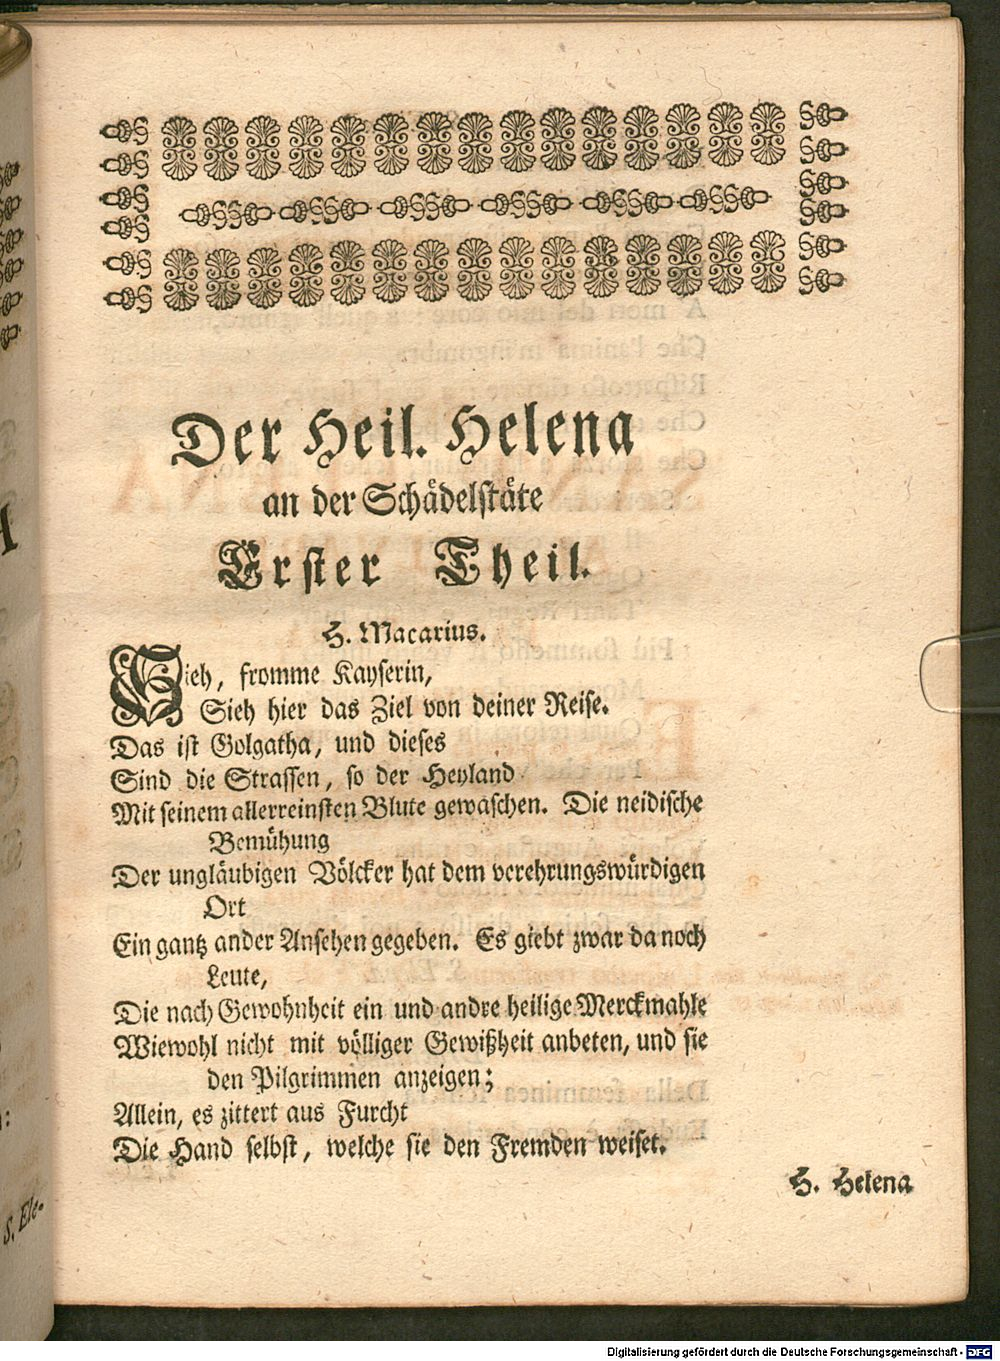 Der Heil. Helena
an der Schädelstäte
Erster Theil.
H. Macarius.
Sieh, fromme Kayserin,
Sieh hier das Ziel von deiner Reise.
Das ist Golgatha, und dieses
Sind die Strassen, so der Heyland
Mit seinem allerreinsten Blute gewaschen. Die neidische
Bemühung
Der ungläubigen Völcker hat dem verehrungswürdigen
Ort
Ein gantz ander Ansehen gegeben. Es giebt zwar da noch
Leute,
Die nach Gewohnheit ein und andre heilige Merckmahle
Wiewohl nicht mit völliger Gewißheit anbeten, und sie
den Pilgrimmen anzeigen;
Allein, es zittert aus Furcht
Die Hand selbst, welche sie den Fremden weiset.
H. Helena
S. Ele-
Digitalisierung gefördert durch die Deutsche Forschungsgemeinschaft - DFG